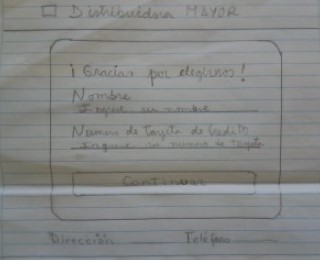 Distribuidora MAYOR
¡Gracias por elegirnos!
Nombre
Ingrese su nombre
Numero de Tarjeta de Credito
Ingrese su numero de tarjeta
Continuar
Dirección Teléfono